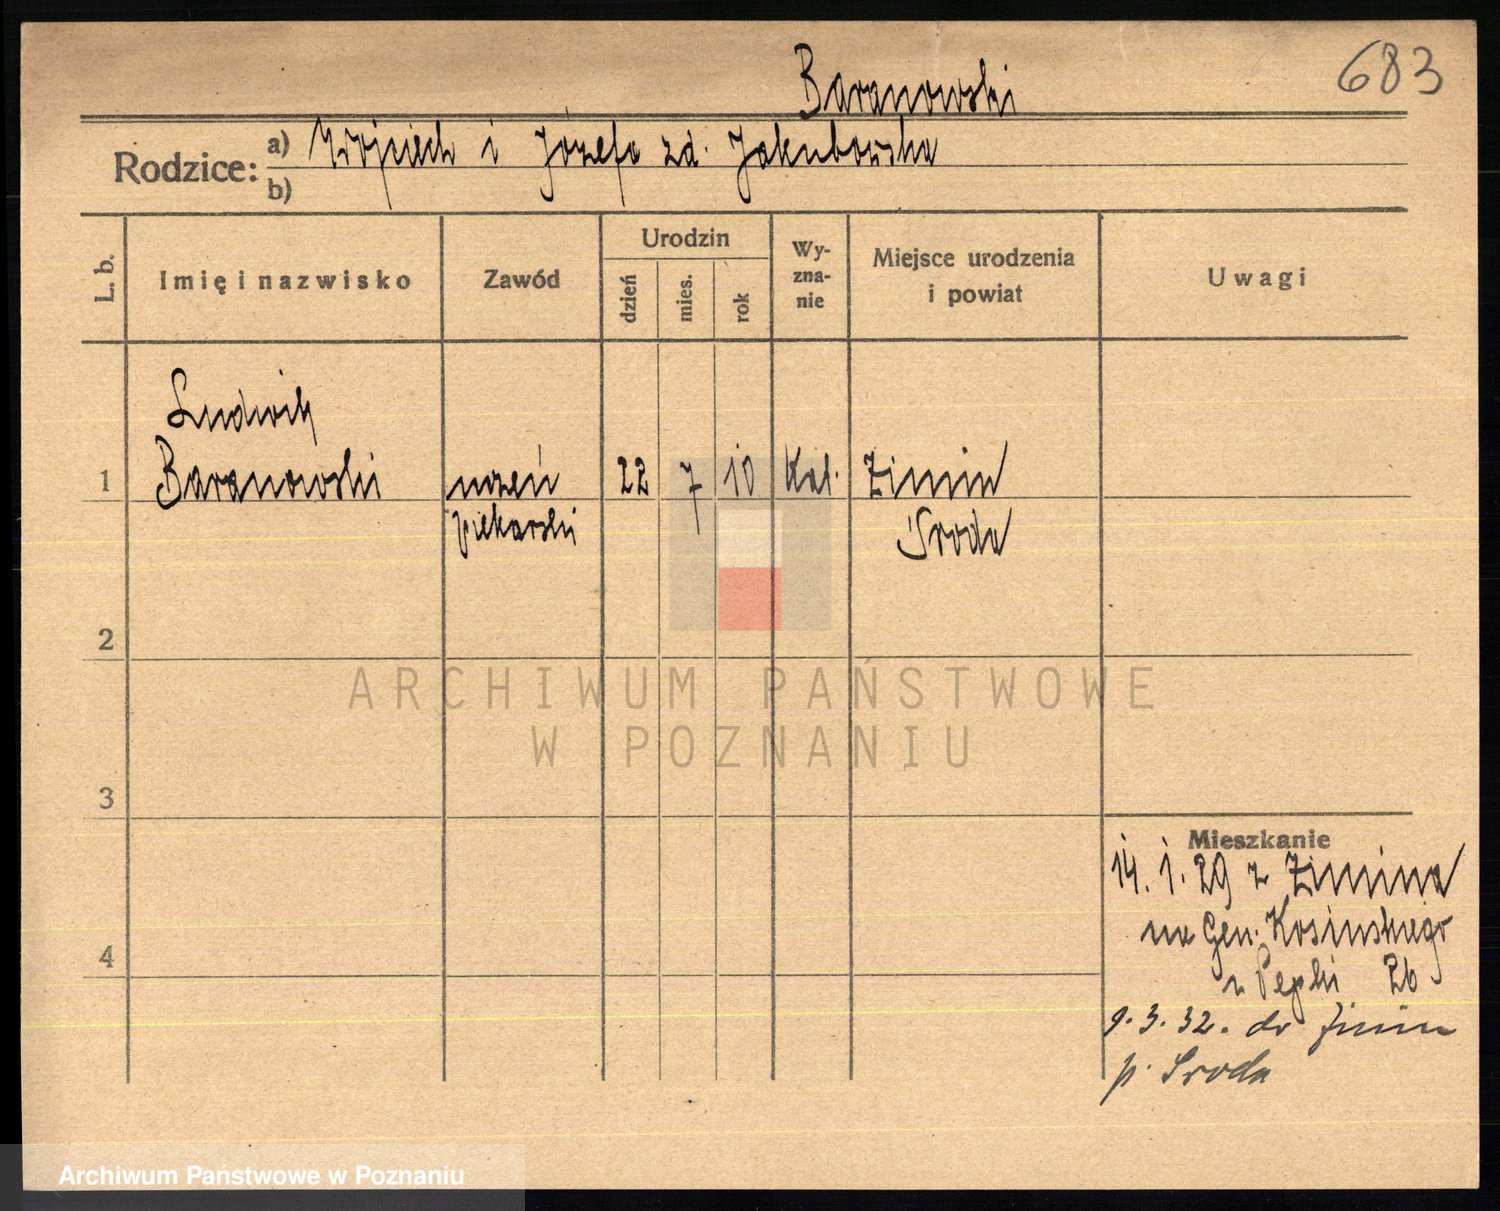 683
Baranowski
Rodzice: a) Wojciech i Józefa zd. Jakubowska
b)
L. b.
Imię i nazwisko
Zawód
Urodzin
dzień
mies.
rok
Wy-
zna-
nie
Miejsce urodzenia
i powiat
Uwagi
Ludwik
1 Baranowski uczeń 22 7 10 Kat. Zimin
piekarski Środa
2
ARCHIWUM PAŃSTWOWE
W POZNANIU
3
Mieszkanie
14. 1. 29 z Zimina
na Gen. Kosińskiego
4
u 26
9. 3. 32. do Zimin
p. Sroda
Archiwum Państwowe w Poznaniu